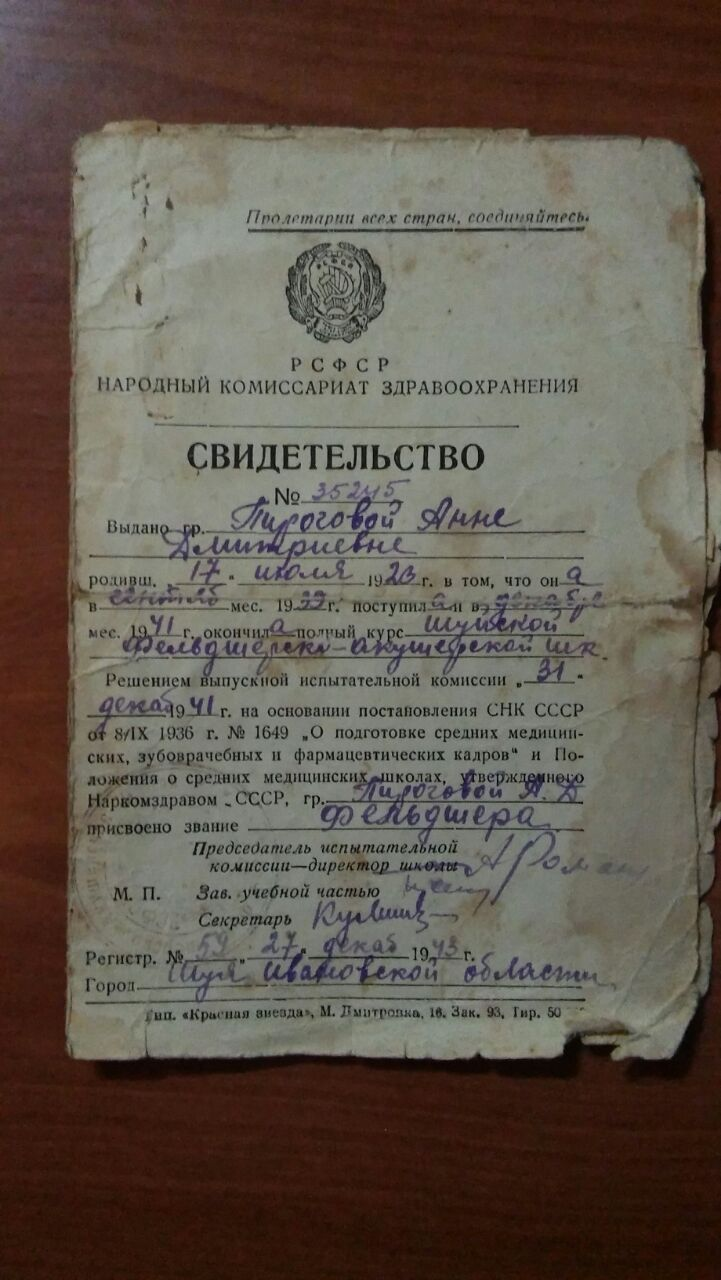 Пролетарии всех стран, соединяйтесь.
РСФСР
НАРОДНЫЙ КОМИССАРИАТ ЗДРАВООХРАНЕНИЯ
СВИДЕТЕЛЬСТВО
№ 35245
Выдано гр. Пироговой Анне
Дмитриевне
родивш. „17" июля 1923 г. в том, что он а
в мес. 19 г. поступил а и в декабре
мес. 1941 г. окончил а полный курс Шуйской
Фельдшерско-акушерской шк.
Решением выпускной испытательной комиссии „31"
декаб 1941 г. на основании постановления СНК СССР
от 8/IX 1936 г. № 1649 „О подготовке средних медицин-
ских, зубоврачебных и фармацевтических кадров" и По-
ложения о средних медицинских школах, утвержденного
Наркомздравом СССР, гр. Пироговой А. Д
присвоено звание Фельдшера
Председатель испытательной
комиссии—директор школы
М. П. Зав. учебной частью
Секретарь
Регистр. № 59 „27" декаб 1943 г.
Город Шуя Ивановской области
Тип. «Красная звезда», М. Дмитровка, 16. Зак. 93, Тир. 50